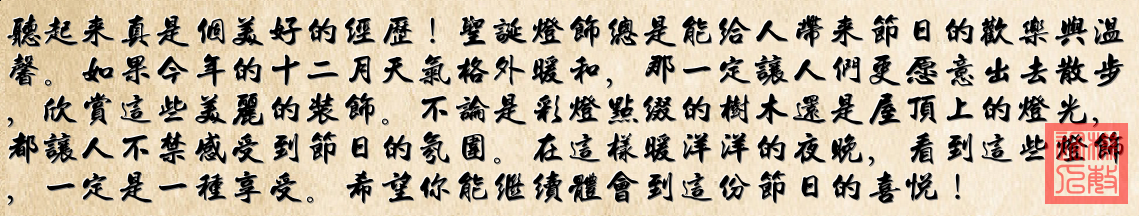 聽起来真是個美好的經歷！聖誕燈飾總是能给人帶来節日的歡樂與温
馨。如果今年的十二月天氣格外暖和，那一定讓人們更愿意出去散步
，欣賞這些美麗的裝飾。不論是彩燈點缀的樹木還是屋頂上的燈光，
都讓人不禁感受到節日的氛圍。在這樣暖洋洋的夜晚，看到這些燈飾
，一定是一種享受。希望你能继續體會到這份節日的喜悦！